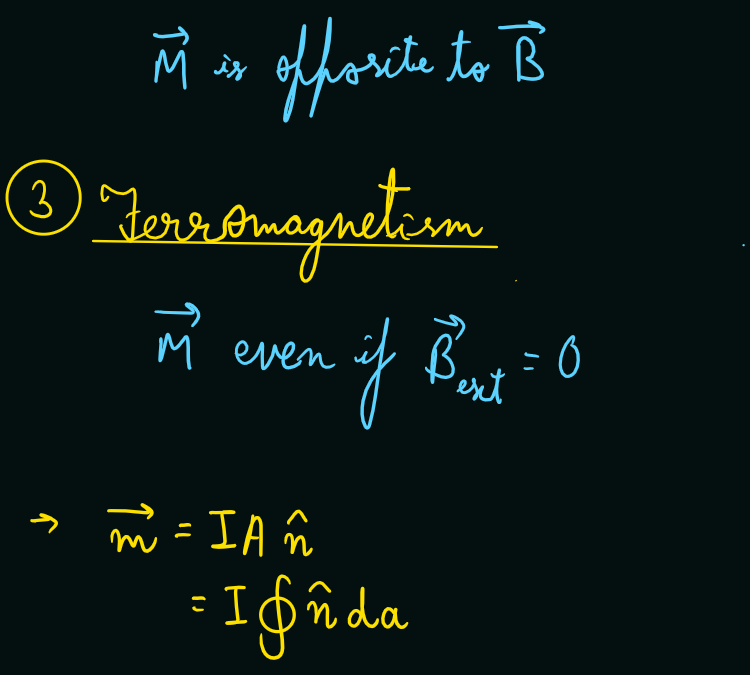 M⃗ is opposite to B⃗
③ Ferromagnetism
M⃗ even if B⃗_ext = 0
→ m⃗ = IA n̂
= I ∮ n̂ da